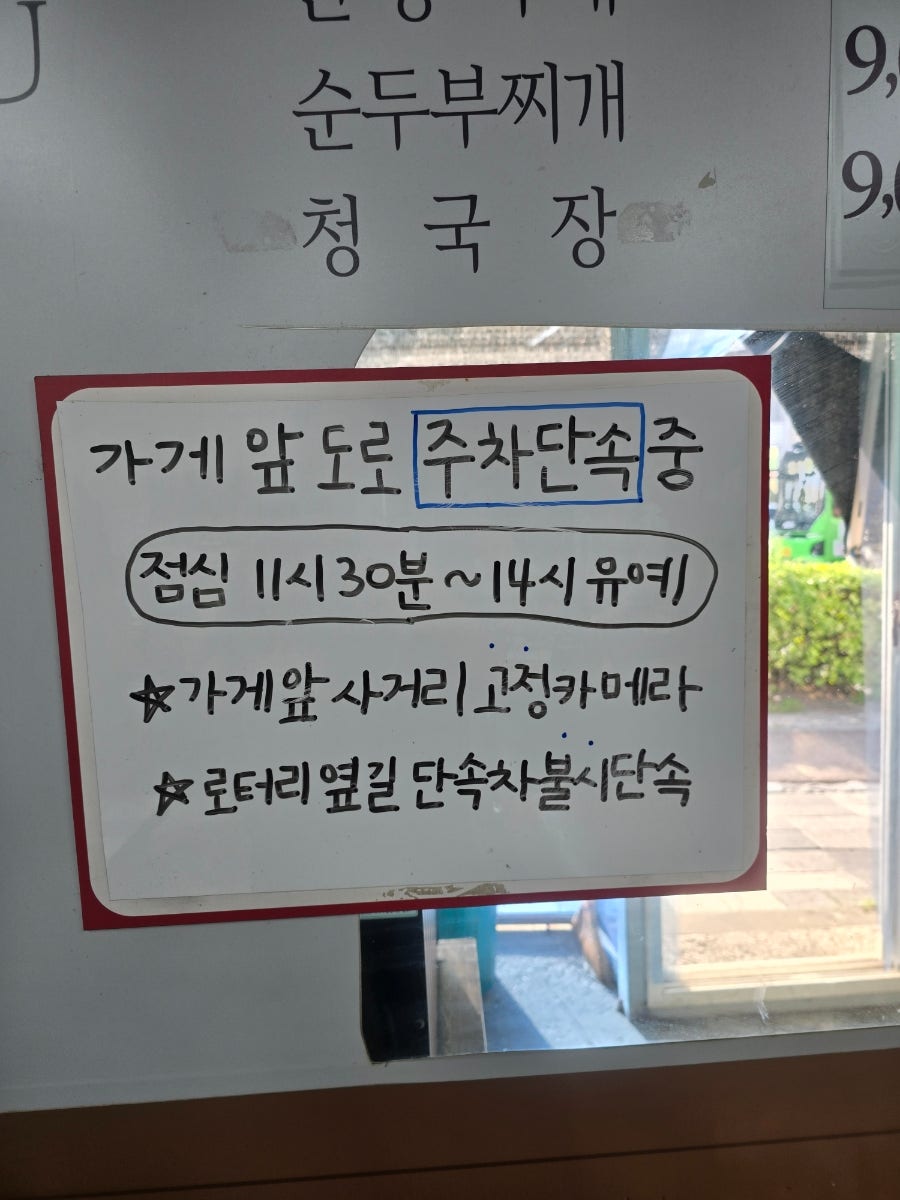 순두부찌개 9,
청국장 9,
가게 앞 도로 주차단속중
점심 11시30분~14시 유예
★가게앞 사거리 고정카메라
★로터리 옆길 단속차불시단속